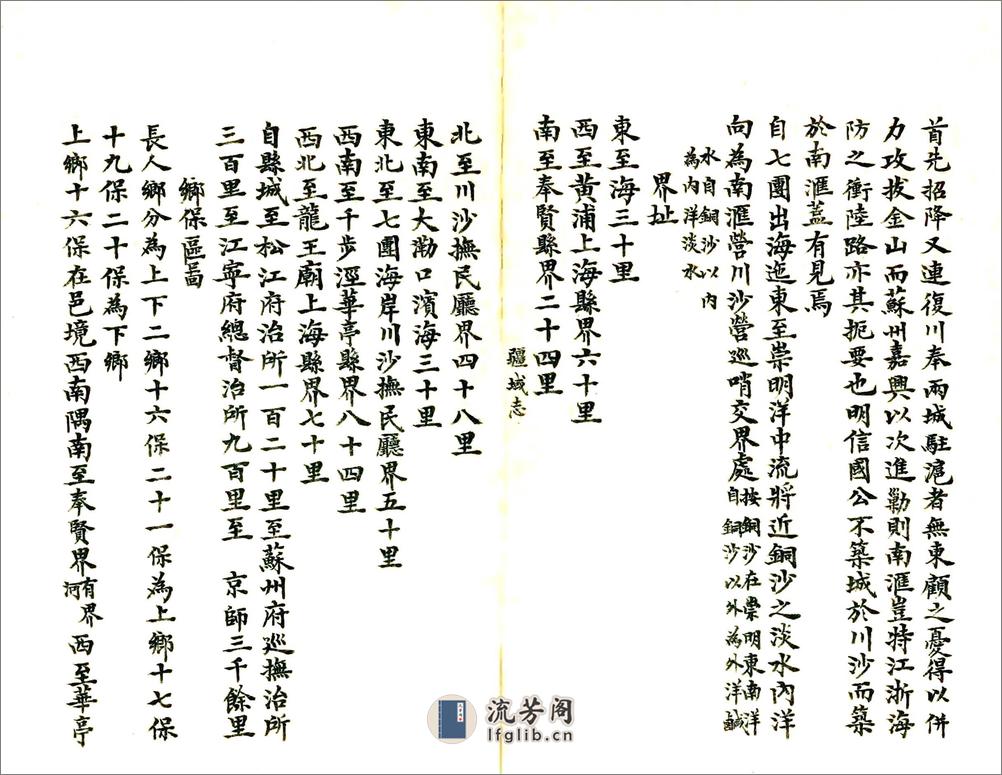 首先招降又連復川奉兩城駐滬者無東顧之憂得以併
力攻拔金山而蘇州嘉興以次進勦則南滙豈特江浙海
防之衝陸路亦其扼要也明信國公不築城於川沙而築
於南滙蓋有見焉
自七團出海迤東至崇明洋中流將近銅沙之淡水內洋
向為南滙營川沙營巡哨交界處按銅沙在崇明東南洋
自銅沙以外為外洋鹹
水自銅沙以內
為內洋淡水
界址
東至海三十里
西至黃浦上海縣界六十里
南至奉賢縣界二十四里
疆域志
北至川沙撫民廳界四十八里
東南至大泐口濱海三十里
東北至七團海岸川沙撫民廳界五十里
西南至千步涇華亭縣界八十四里
西北至龍王廟上海縣界七十里
自縣城至松江府治所一百二十里至蘇州府巡撫治所
三百里至江寧府總督治所九百里至 京師三千餘里
鄉保區啚
長人鄉分為上下二鄉十六保二十一保為上鄉十七保
十九保二十保為下鄉
上鄉十六保在邑境西南隅南至奉賢界有界河西至華亭
流芳阁
lfglib.cn